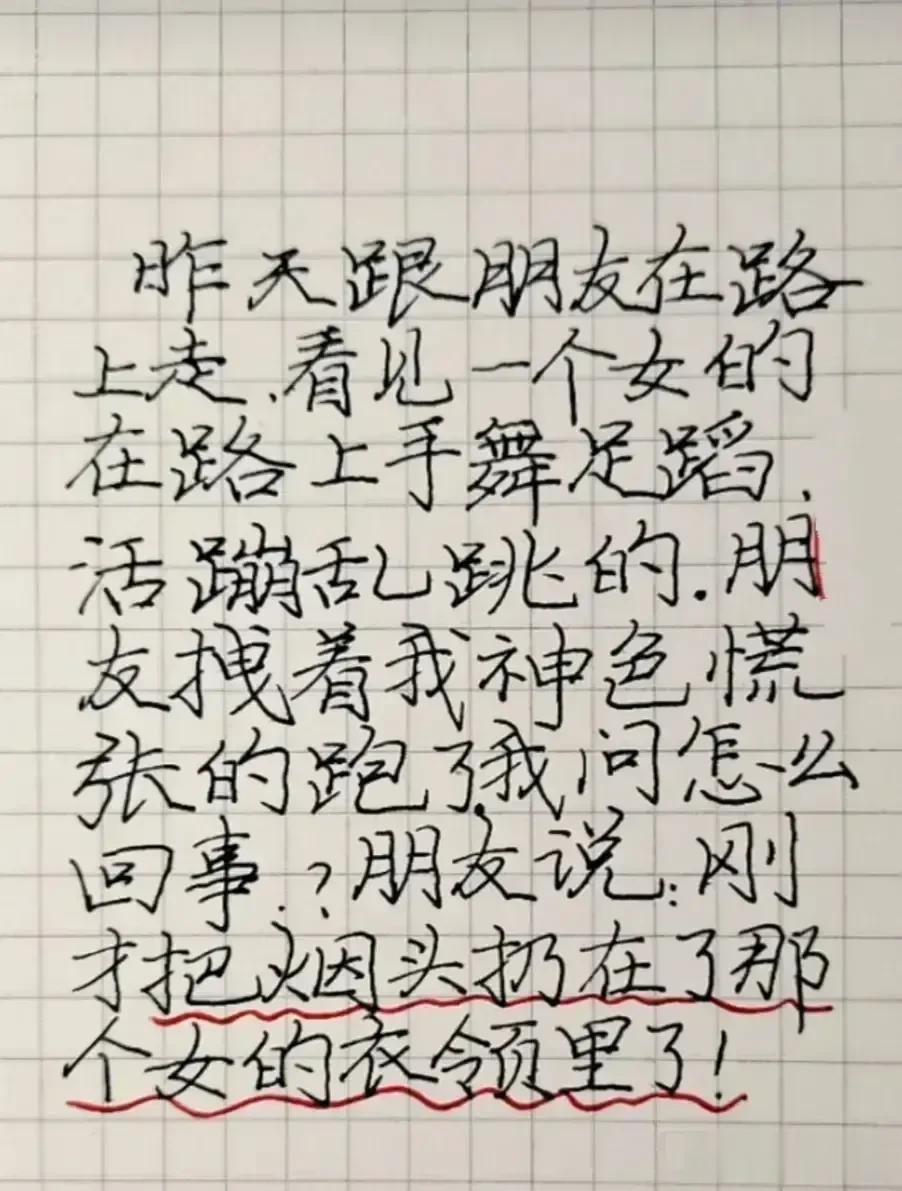 昨天跟朋友在路
上走.看见一个女的
在路上手舞足蹈.
活蹦乱跳的.朋
友拽着我神色慌
张的跑了.我问怎么
回事.?朋友说:刚
才把烟头扔在了那
个女的衣领里了!